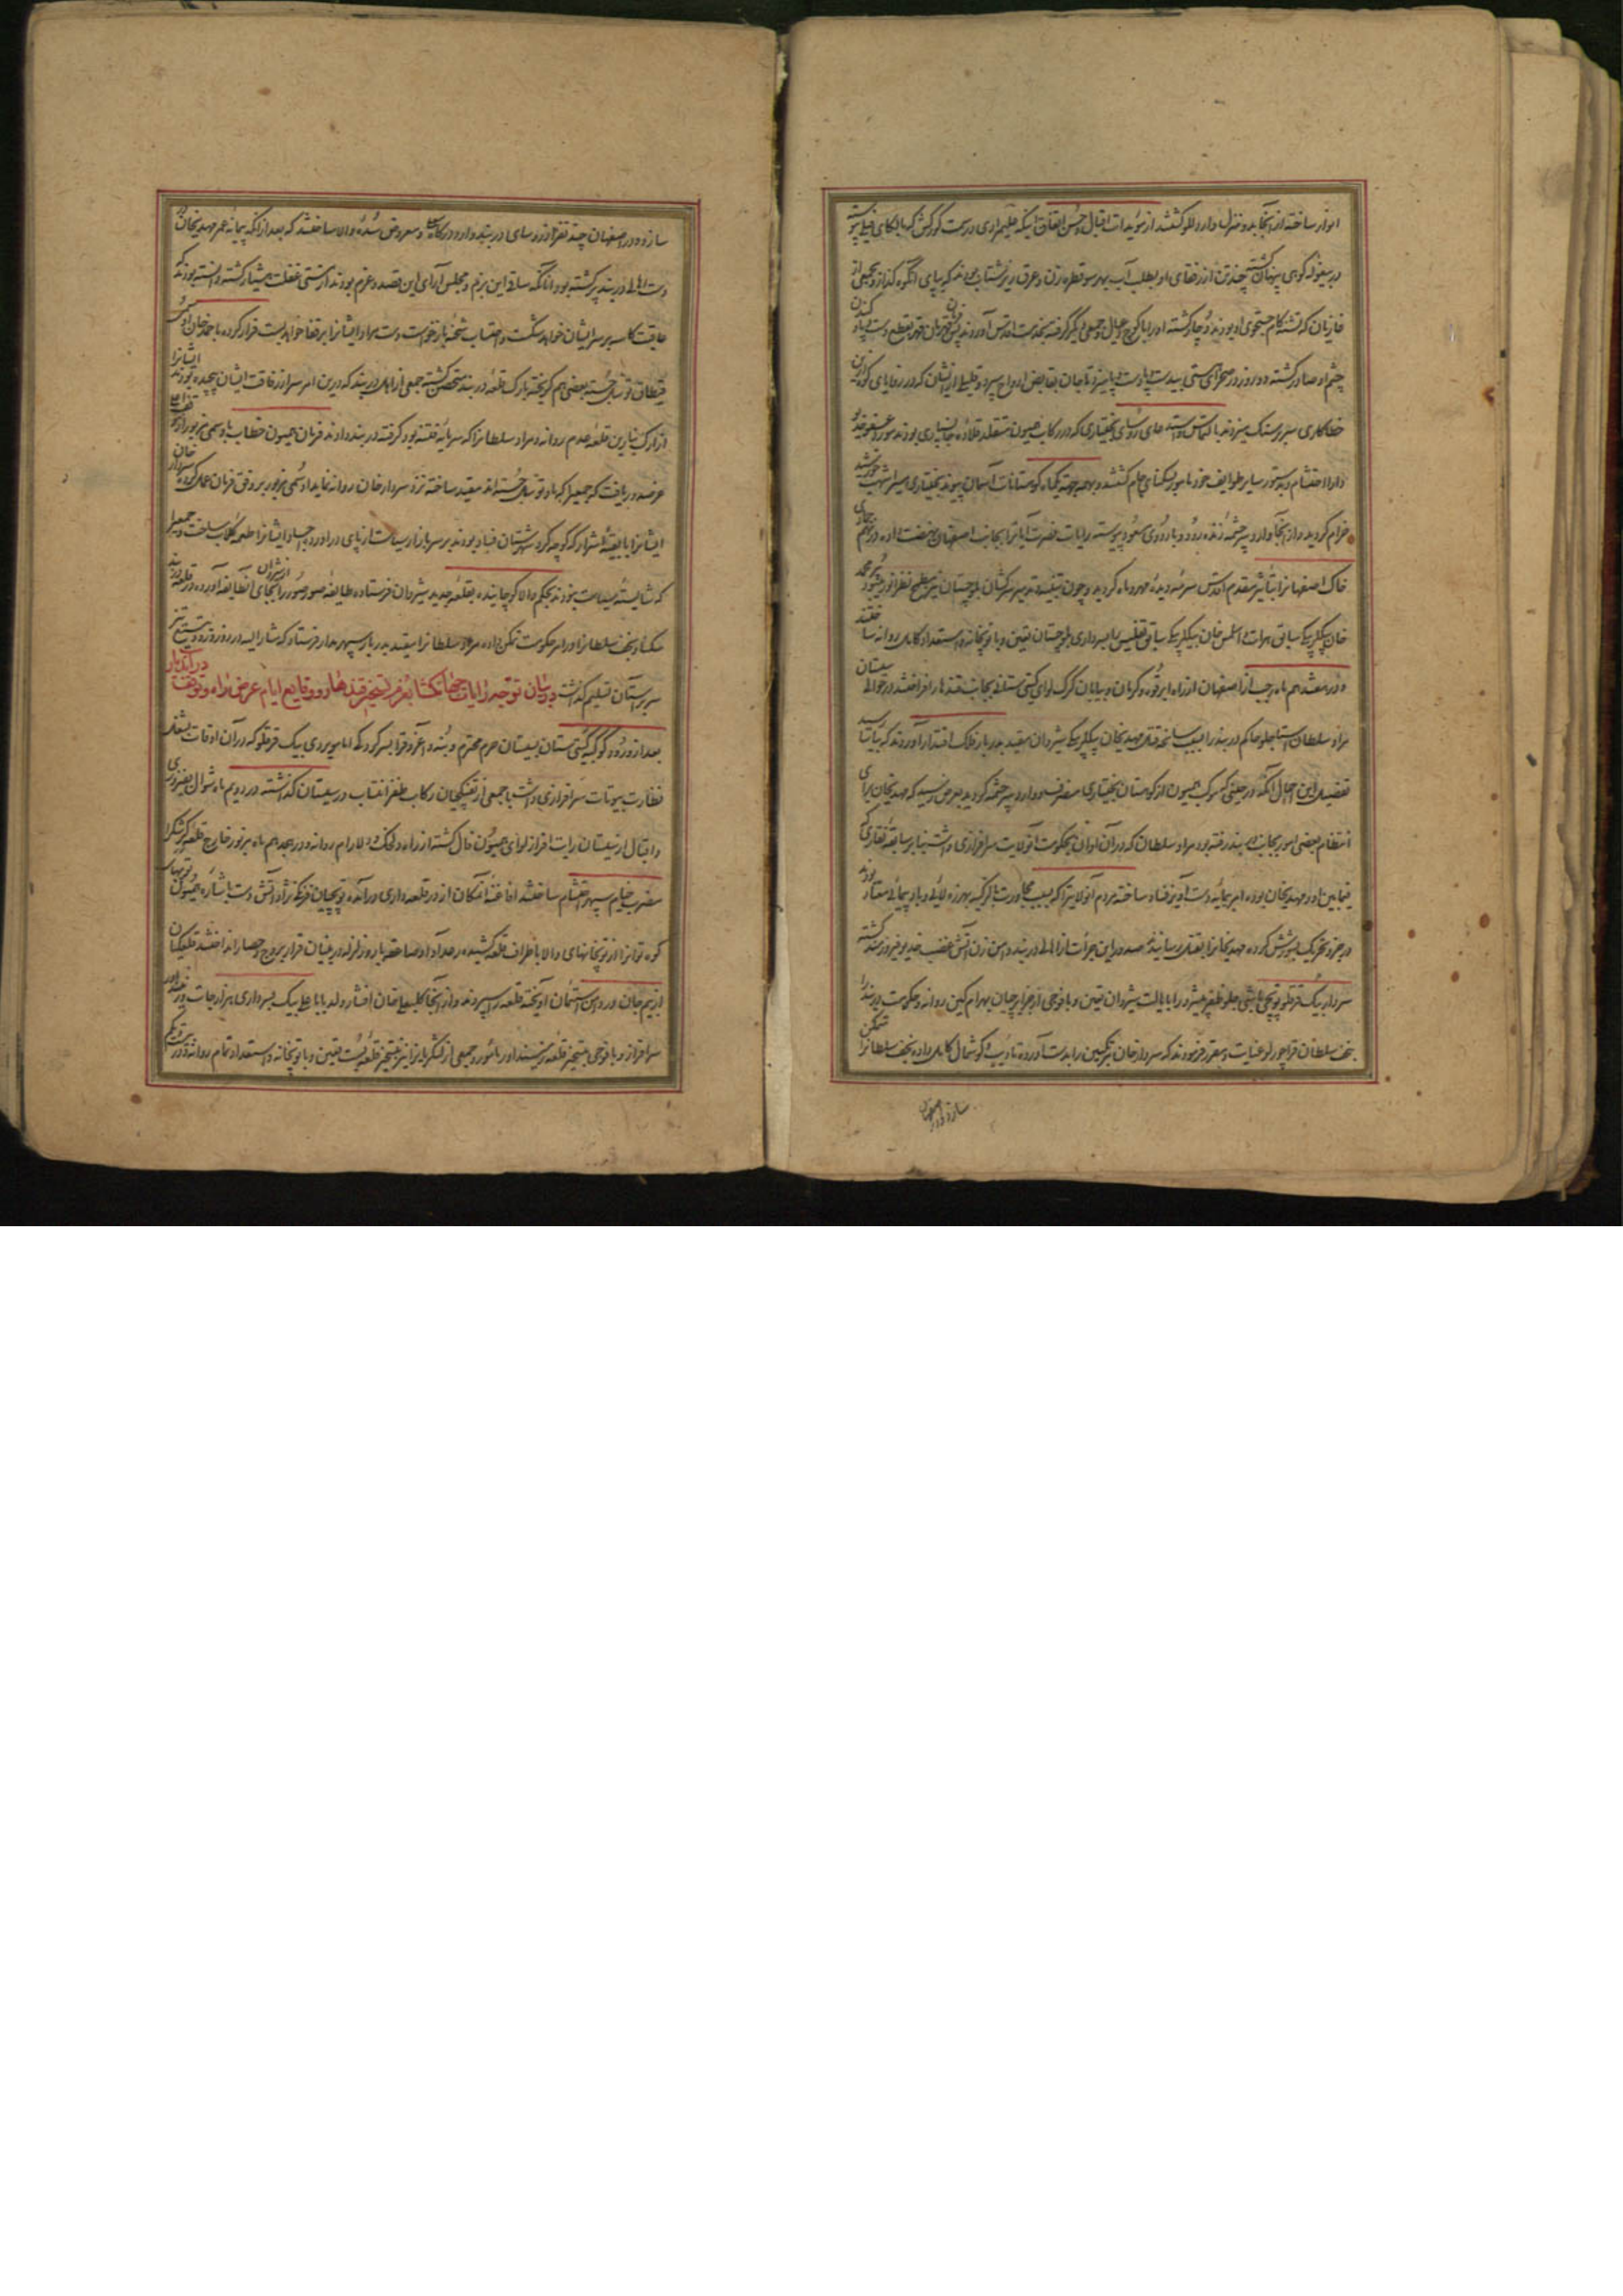 انوار ساخته از آنجا بدو منزل وارد لاو کشتند از مؤیدات اقبال و حسن اتفاق اینکه علیمراد در سمت
در بیغوله کوهی پنهان گشته چند تن از رفقای او بطلب آب بهر سو قطره زن و عرق ریز شتاب
غازیان که تشنه کام جستجوی او بودند دوچار گشته او را با کوچ و عیال و جمعی دیگر گرفته بخدمت اقدس آوردند
چشم او صادر گشته دو روز در صحرای هستی بیدست و پا دست و پا میزد تا جان بقابض ارواح سپرد و قلیلی از ایشان که در زوایای کوه
خطاکاری سر بر سنک میزدند بالتماس و استدعای رؤسای بختیاری که در رکاب همیون متقلد قلاده جانسپاری بودند مورد عفو
دارا احتشام و بدستور سایر طوایف خود مامور بسکنای جام گشتند و بهمه جهت یکماه کوهستانات آسمان پیوند بختیاری
خرام گردید و از آنجا وارد سرچشمه زنده رود و با اردوی مسعود پیوسته رایات نصرت آیات بجانب اصفهان نهضت داده در نهم
خاک اصفهانرا بتاثیر مقدم اقدس سرمه دیده مهر و ماه گردید و چون تنبیه و تدمیر سرکشان بلوچستان نیز مطمح نظر انور میبود
خان بیکلربیکی سابق هرات و اسلمس خان بیکلربیکی سابق تفلیس را بسرداری بلوچستان تعیین و با توپخانه و استعداد کامل روانه ساختند
و در هفدهم ماه رجب از اصفهان از راه ابرقوه و کرمان و بیابان گرگ لوای کیتی ستانی بجانب قندهار افراختند در حوالی سیستان
مراد سلطان استاجلو حاکم دربند را بسبب سانحه قتل مهدیخان بیکلربیکی شیروان مقید بدربار فلک اقتدار آوردند
تفصیل این اجمال آنکه در حینی که موکب همیون از کوهستان بختیاری منصرف و وارد سرچشمه گردید بعرض رسید که مهدیخان برای
انتظام بعضی امور بجانب دربند رفته بود مراد سلطان که در آن اوان بحکومت آنولایت سرافرازی داشت بنابر سابقه نقاری که
فیمابین او و مهدیخان بوده این بهانه را دست آویز فساد ساخته مردم آنولایترا که بسبب مجاورت با لزکیه بهرزه لائی و باد پیمائی معتاد بودند
در جزو تحریک بشورش کرده مهدیخانرا بقتل رسانیدند صدور این جرأت از اهالی دربند دامن زن آتش غضب خدیو فیروزمند گشته
سردار بیک قرقلو توپچی باشی جلو ظفر پیشرو را بایالت شیروان تعیین و با فوجی از جزایرچیان بهرام کین روانه و حکومت دربند را
نجف سلطان قراچورلو عنایت و مقرر فرمودند که سردار خان مرتکبین را بدست آورده تادیب و گوشمال کامل داده نجف سلطانرا متمکن
سازد و در اصفهان
سازد و در اصفهان چند نفر از رؤسای دربند وارد درگاه معلی و معروض سده والا ساختند که بعد از آنکه پیمانه عمر مهدیخان
دست اهالی دربند پر گشته بود آنانکه ساقی این بزم و مجلس آرای این قصد و عزم بودند از مستی غفلت هشیار گشته دانسته بودند که
عاقبت کاسه بر سر ایشان خواهد شکست و احتساب شحنه بازخواست دست مراد ایشانرا بر قفا خواهد بست فرار کرده
قیطاق توسل جسته بعضی هم گریخته بارک قلعه دربند متحصن گشته جمعی از اهل دربند که درین امر سر از رفاقت ایشان پیچیده بودند ایشانرا
از ارک نارین قلعه عدم روانه و مراد سلطانرا که سر مایه فتنه بود گرفته در بند دادند فرمان همیون خطاب باوسمی مزبور
عرضه دریافت که جمعی را که باو توسل جسته اند مقید ساخته نزد سردار خان روانه نماید اوسمی مزبور بر وفق فرمان عمل کرده
ایشانرا با بقیه اشرار که کوچه گرد شهرستان فساد بودند بر سر بازار سیاست از پای درآورد و اجساد ایشانرا طعمه کلاب ساخت و جمعیرا
که شایسته سیاست نبودند بحکم والا کوچانیده بقلعه جدید شیروان فرستاده طایفه صور صور را از شروان بجای آنطایفه آورده در قلعه دربند
سکنا و نجف سلطانرا در امر حکومت تمکن داده مراد سلطانرا مقید بدربار سپهر مدار فرستاد که مشارالیه در روز ورود
سر بر آستان تسلیم گذاشت در بیان توجه رایات جهانکشا بعزم تسخیر قندهار و وقایع ایام عرض راه و توقف در آندیار
بعد از ورود کوکبه گیتی ستان بسیستان حرم محترم و بنه و آغروق را بسرکردگی امامویردی بیک قرقلو که در آن اوقات بشغل
نظارت بیوتات سرافرازی داشت با جمعی از تفنکچیان رکاب ظفر انتساب در سیستان گذاشته در دویم ماه شوال بفیروزی
و اقبال از سیستان رایت افراز لوای همیون فال گشته از راه دلخک و دلارام روانه و در هجدهم ماه مزبور خارج قلعه کرشک را
مضرب خیام سپهر احتشام ساختند افاغنه آنمکان از در قلعه داری درآمده توپچیان فرنکی نژاد آتش دست باشاره همیون توپهای
کوه توان را از توپخانهای والا باطراف قلعه کشیده رعد آوا و صاعقه بار و زلزله در بنیان قرار بروج و حصار انداختند قلعگیان
از بیم جان در دامن استیمان آویخته قلعه را سپردند و از آنجا کلبعلی خان افشار ولد بابا علی بیک بسرداری هزارجات
سرافراز و با فوجی بتسخیر قلعه زمینداور مامور و جمعی از لشکریانرا نیز بتسخیر قلعه بست تعیین و با توپخانه و استعداد تمام روانه